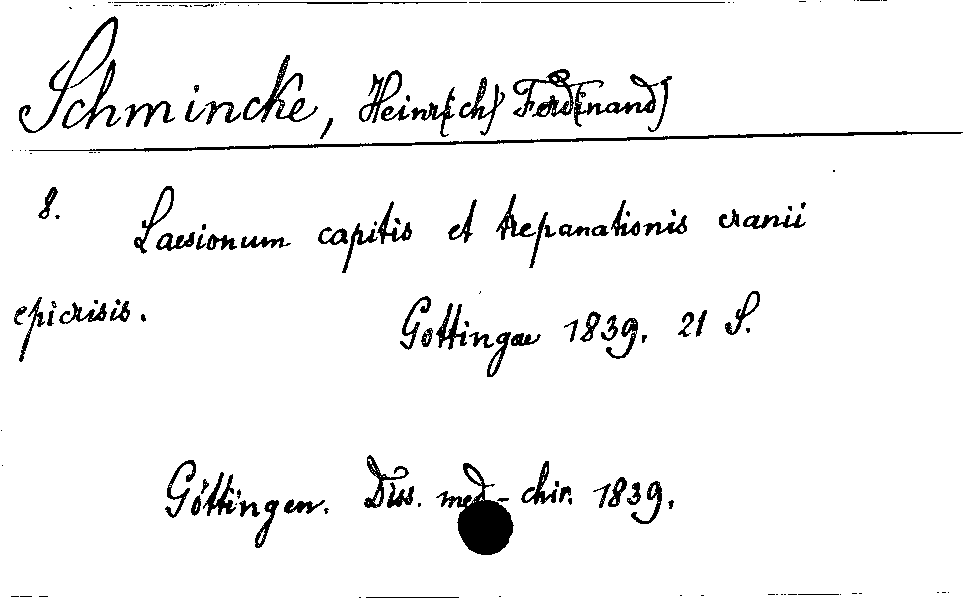 Schmincke, Heinr[ich] Ferd[inand]
8. Laesionum capitis et trepanationis cranii
epicrisis. Gottingae 1839. 21 S.
Göttingen. Diss. med.-chir. 1839.